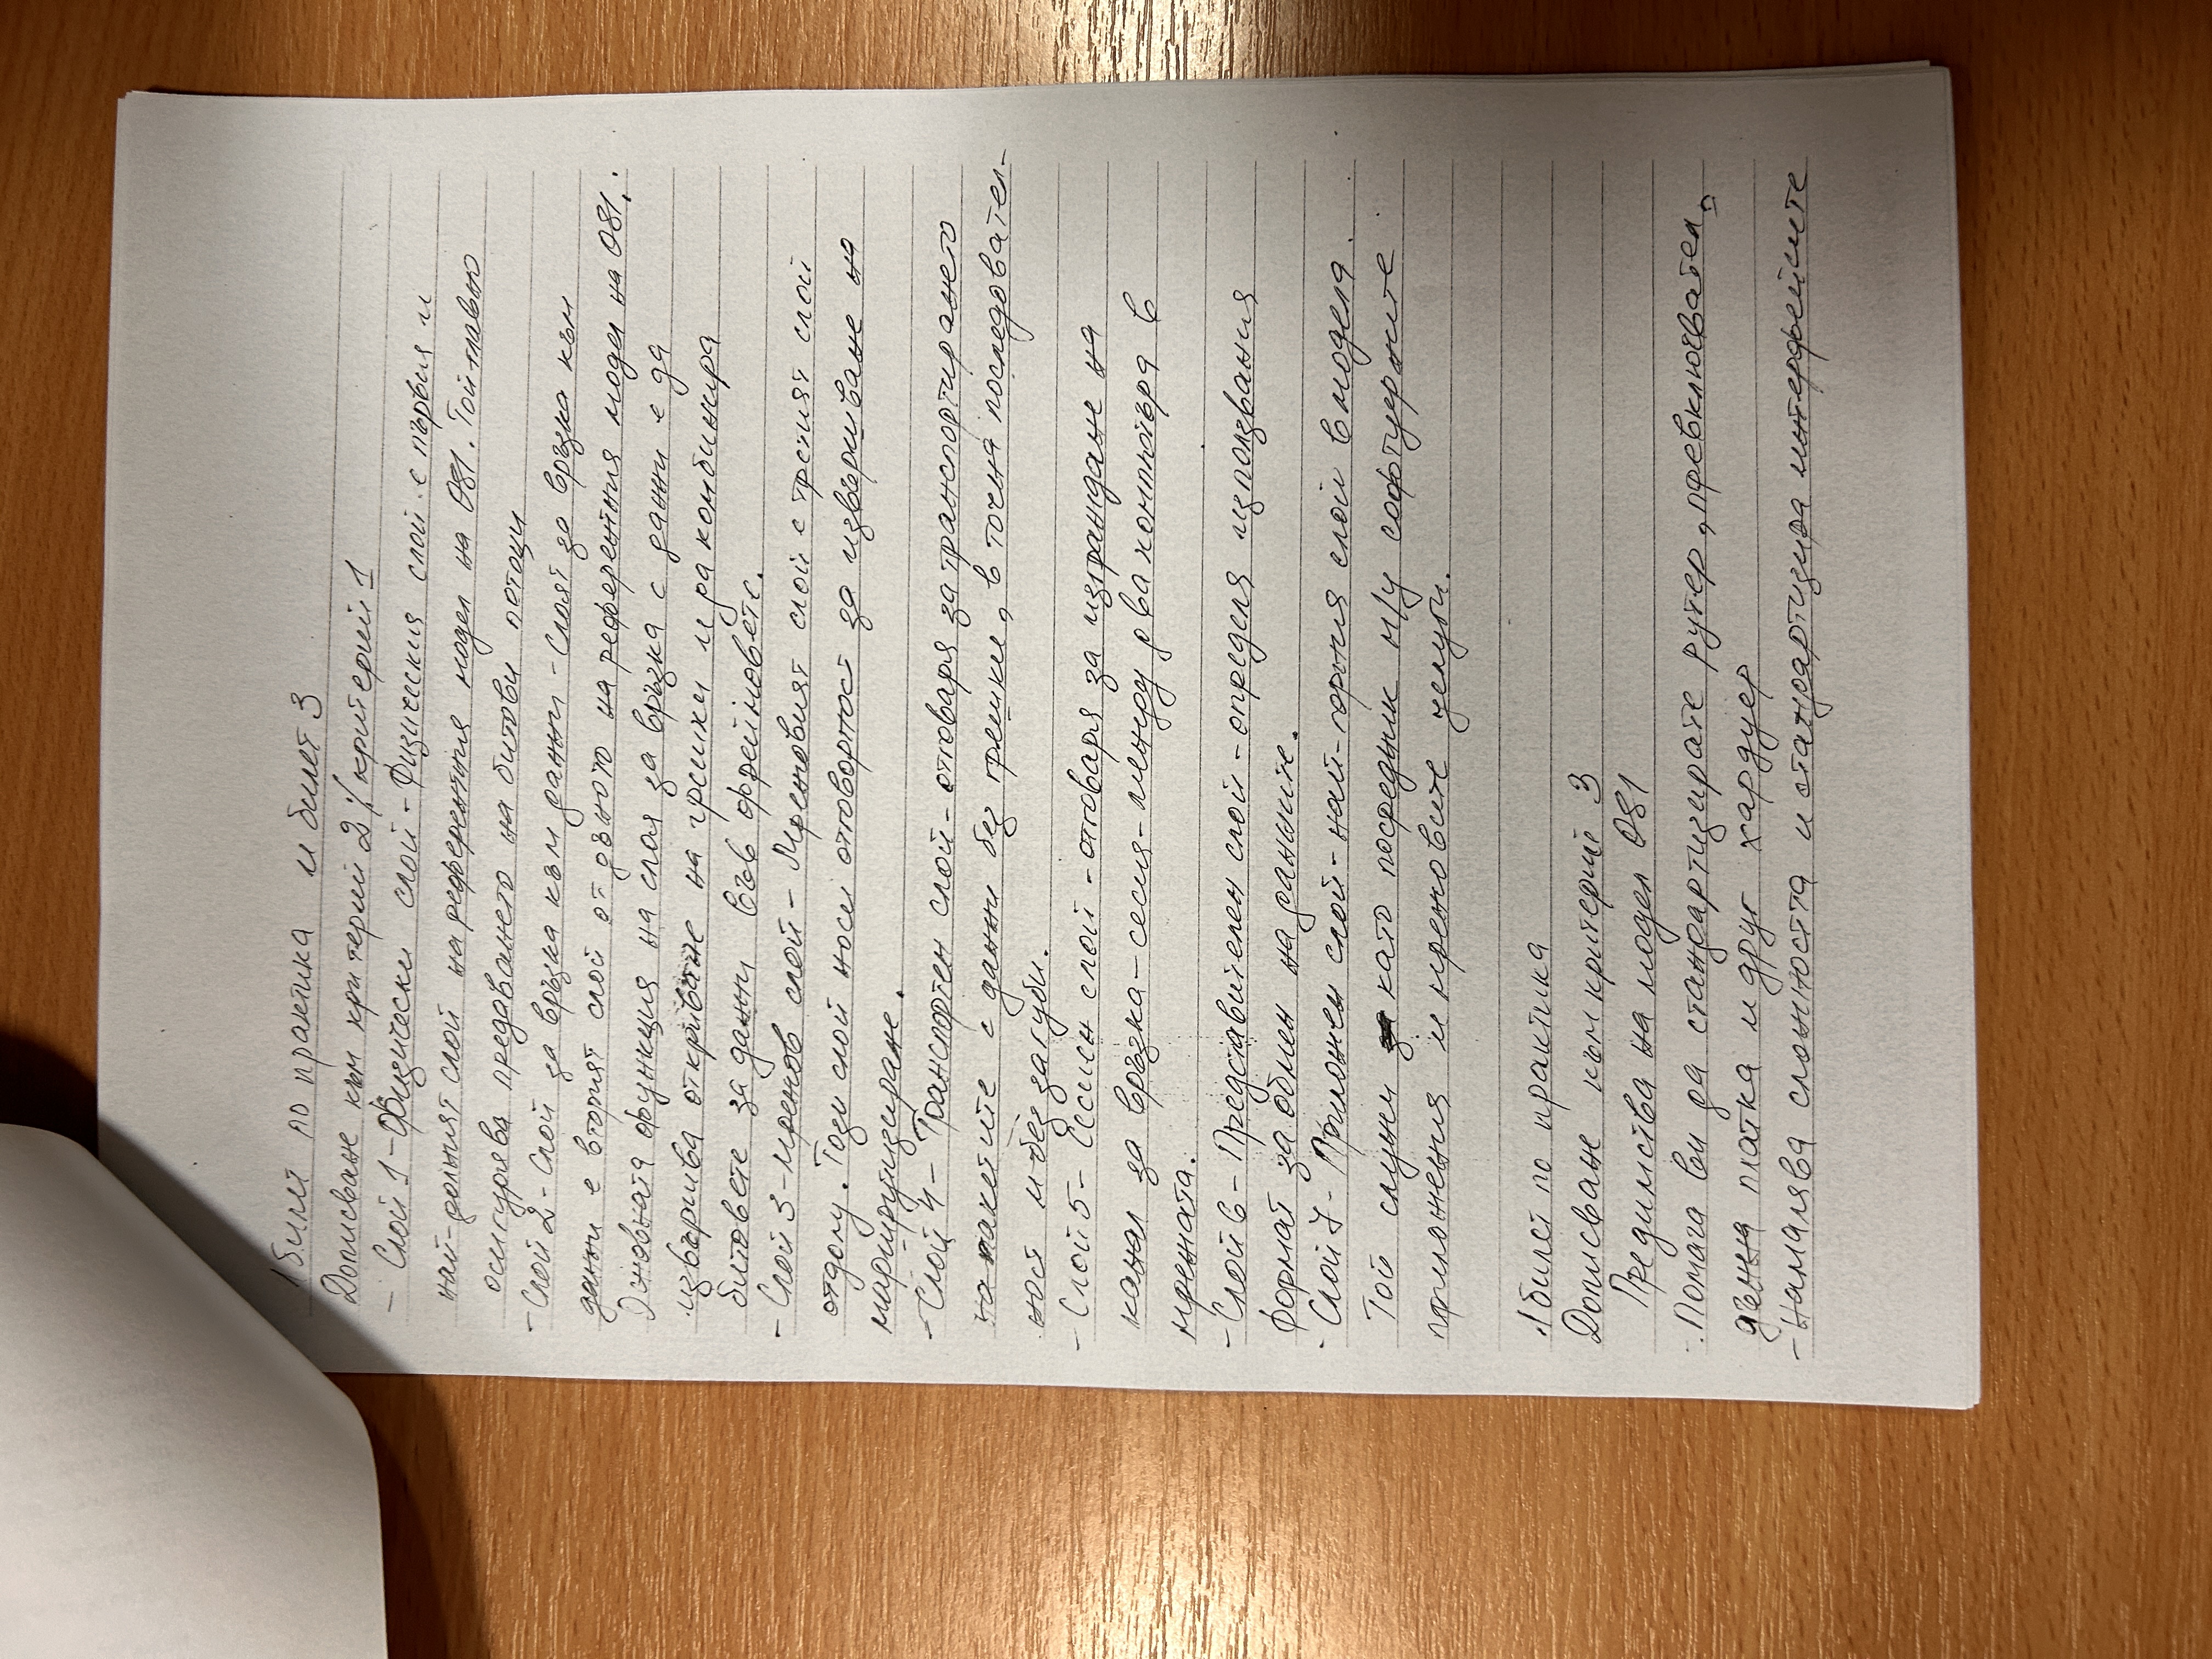 1 билет по практика и билет 3
Дописване към критерий 2 % критерий 1
- Слой 1 - Физически слой - Физическия слой е първия и
най-долният слой на референтния модел на OSI. Той главно
осигурява предаването на битови потоци
- Слой 2 - Слой за връзка към данни - Слоят за връзка към
данни е вторият слой от дъното на референтния модел на OSI.
Основната функция на слоя за връзка с данни е да
извършва откриване на грешки и да комбинира
битовете за данни във фреймовете.
- Слой 3 - мрежов слой - Мрежовият слой е третият слой
отдолу. Този слой носи отговорност за извършване на
маршрутизиране.
- Слой 4 - Транспортен слой - отговаря за транспортирането
на пакетите с данни без грешки, в точна последовател-
ност и без загуби.
- Слой 5 - Сесиен слой - отговаря за изграждане на
канал за връзка - сесия - между два компютъра в
мрежата.
- Слой 6 - Представителен слой - определя използвания
формат за обмен на данните.
- Слой 7 - Приложен слой - най-горния слой в модела.
Той служи като посредник м/у софтуерните
приложения и мрежовите услуги.
1 билет по практика
Дописване към критерий 3
Предимства на модел OSI
- Помага ви да стандартизирате рутер, превключвател,
дънна платка и друг хардуер
- Намалява сложността и стандартизира интерфейсите